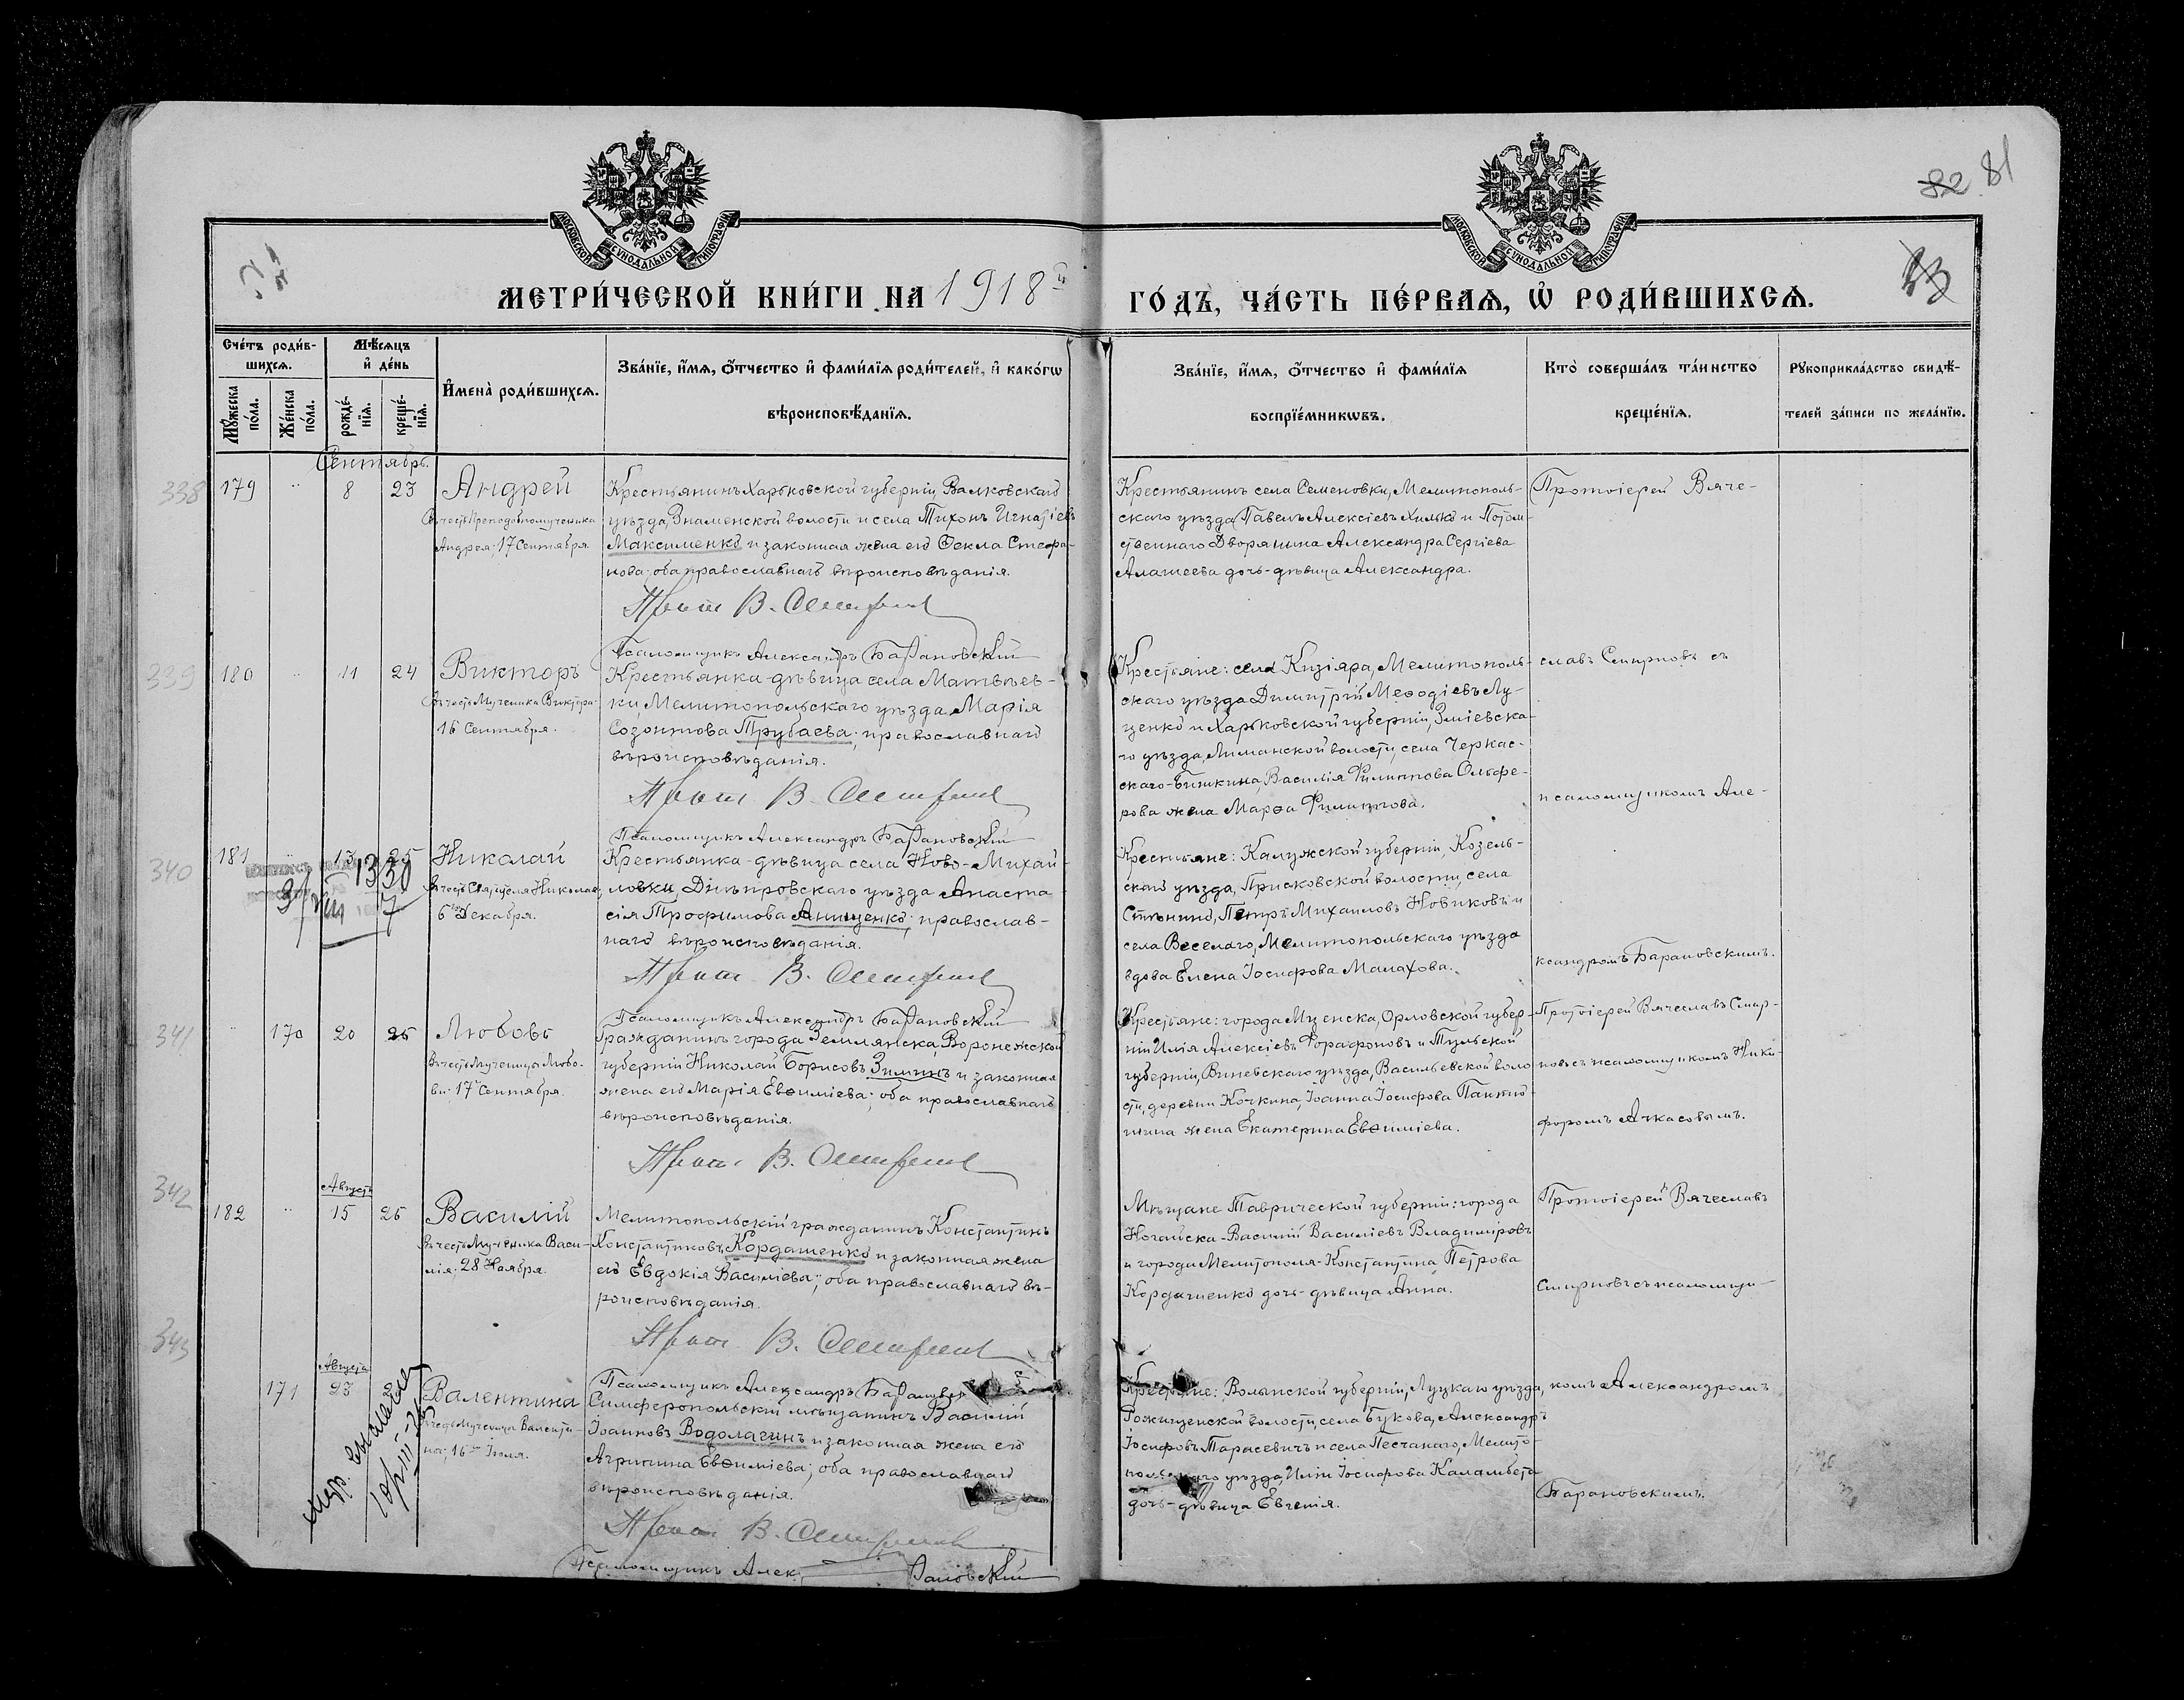 82 81
МОСКОВСКОЙ СѴНОДАЛЬНОЙ ТИПОГРАФІИ
МОСКОВСКОЙ СѴНОДАЛЬНОЙ ТИПОГРАФІИ
МЕТРИ́ЧЕСКОЙ КНИ́ГИ НА 1918й ГО́ДЪ, ЧА́СТЬ ПЕ́РВАѦ, Ѡ҆ РОДИ́ВШИХСѦ.
Сче́тъ роди́в-
шихсѧ.
Мѣ́сѧцъ
и҆ де́нь
Мꙋ́жеска
по́ла.
Же́нска
по́ла.
рожде́-
нїѧ.
креще́-
нїѧ.
И҆мена̀ роди́вшихсѧ.
Зва́нїе, и҆́мѧ, ѻ҆́тчество и҆ фами́лїѧ роди́телей, и҆ како́гѡ
вѣроисповѣ́данїѧ.
Зва́нїе, и҆́мѧ, ѻ҆́тчество и҆ фами́лїѧ
воспрїе́мникѡвъ.
Кто̀ соверша́лъ та́инство
креще́нїѧ.
Рꙋкоприкла́дство свидѣ́-
телей за́писи по жела́нїю.
Сентябрь.
338 179 " 8 23 Андрей
Въ честь Преподобномученика
Андрея; 17 Сентября.
Крестьянинъ Харьковской губерніи, Валковскаго
уѣзда, Знаменской волости и села Тихонъ Игнатіевъ
Максименко и законная жена его Ѳекла Стефа-
нова; оба православнаго вѣроисповѣданія.
Прот. В. Смирнов
Псаломщикъ Александръ Барановскій
Крестьянинъ села Семеновки, Мелитополь-
скаго уѣзда Павелъ Алексіевъ Хилько и Потом-
ственнаго Дворянина Александра Сергіева
Алашеева дочь-дѣвица Александра.
Протоіерей Вяче-
339 180 " 11 24 Викторъ
Въ честь Мученика Виктора
16 Сентября.
Крестьянка-дѣвица села Матвѣев-
ки, Мелитопольскаго уѣзда Марія
Созонтова Трубаева; православнаго
вѣроисповѣданія.
Прот. В. Смирнов
Псаломщикъ Александръ Барановскій
Крестьяне: села Кизіяра, Мелитополь-
скаго уѣзда Димитрій Меѳодіевъ Лу-
ценко и Харьковской губерніи, Зміевска-
го уѣзда, Лиманской волости, села Черкас-
скаго-Бишкина, Василія Филиппова Ольфе-
рова жена Марѳа Филиппова.
славъ Смирновъ съ
псаломщикомъ Але-
340 181 " 13 25 Николай
Въ честь Святителя Николая,
6го Декабря.
Крестьянка-дѣвица села Ново-Михай-
ловки, Днѣпровскаго уѣзда Анаста-
сія Трофимова Анищенко; православ-
наго вѣроисповѣданія.
Прот. В. Смирнов
Псаломщикъ Александръ Барановскій
Крестьяне: Калужской губерніи, Козель-
скаго уѣзда, Прысковской волости, села
Стѣнино, Петръ Михаиловъ Новиковъ и
села Веселаго, Мелитопольскаго уѣзда
вдова Елена Іосифова Малахова.
ксандромъ Барановскимъ.
341 " 170 20 25 Любовь
Въ честь Мученицы Любо-
ви; 17 Сентября.
Гражданинъ города Землянска, Воронежской
губерніи Николай Борисовъ Зиминъ и законная
жена его Марія Евѳиміева; оба православнаго
вѣроисповѣданія.
Прот. В. Смирнов
Крестьяне: города Мценска, Орловской губер-
ніи Илія Алексіевъ Форафоновъ и Тульской
губерніи, Веневскаго уѣзда, Васильевской воло-
сти, деревни Кочкина, Іоанна Іосифова
жена Екатерина Евѳиміева.
Протоіерей Вячеславъ Смир-
новъ съ псаломщикомъ Ники-
форомъ Ачкасовымъ.
342 182 " Августъ 15 25 Василій
Въ честь Мученика Васи-
лія; 28 Ноября.
Мелитопольскій гражданинъ Константинъ
Константиновъ Кордашенко и законная жена
его Евдокія Васильева; оба православнаго вѣ-
роисповѣданія.
Прот. В. Смирнов
Псаломщикъ Александръ
Мѣщане Таврической губерніи: города
Ногайска - Василій Василіевъ Владиміровъ
и города Мелитополя - Константина Петрова
Кордашенко дочь-дѣвица Анна.
Протоіерей Вячеславъ
Смирновъ съ псаломщи-
343 171 Августа 23 Валентина
Въ честь Мученицы Валенти-
ны; 16го Іюля.
Симферопольскій мѣщанинъ Василій
Іоанновъ Водолагинъ и законная жена его
Агрипина Евѳиміева; оба православнаго
вѣроисповѣданія.
Прот. В. Смирнов
Псаломщикъ Алек
Крестьяне: Волынской губерніи, Луцкаго уѣзда,
Рожищенской волости, села Букова, Александръ
Іосифовъ Тарасевичъ и села Песчанаго, Мелито-
польскаго уѣзда Иліи Іосифова Каламбета
дочь-дѣвица Евгенія.
комъ Александромъ
Барановскимъ.